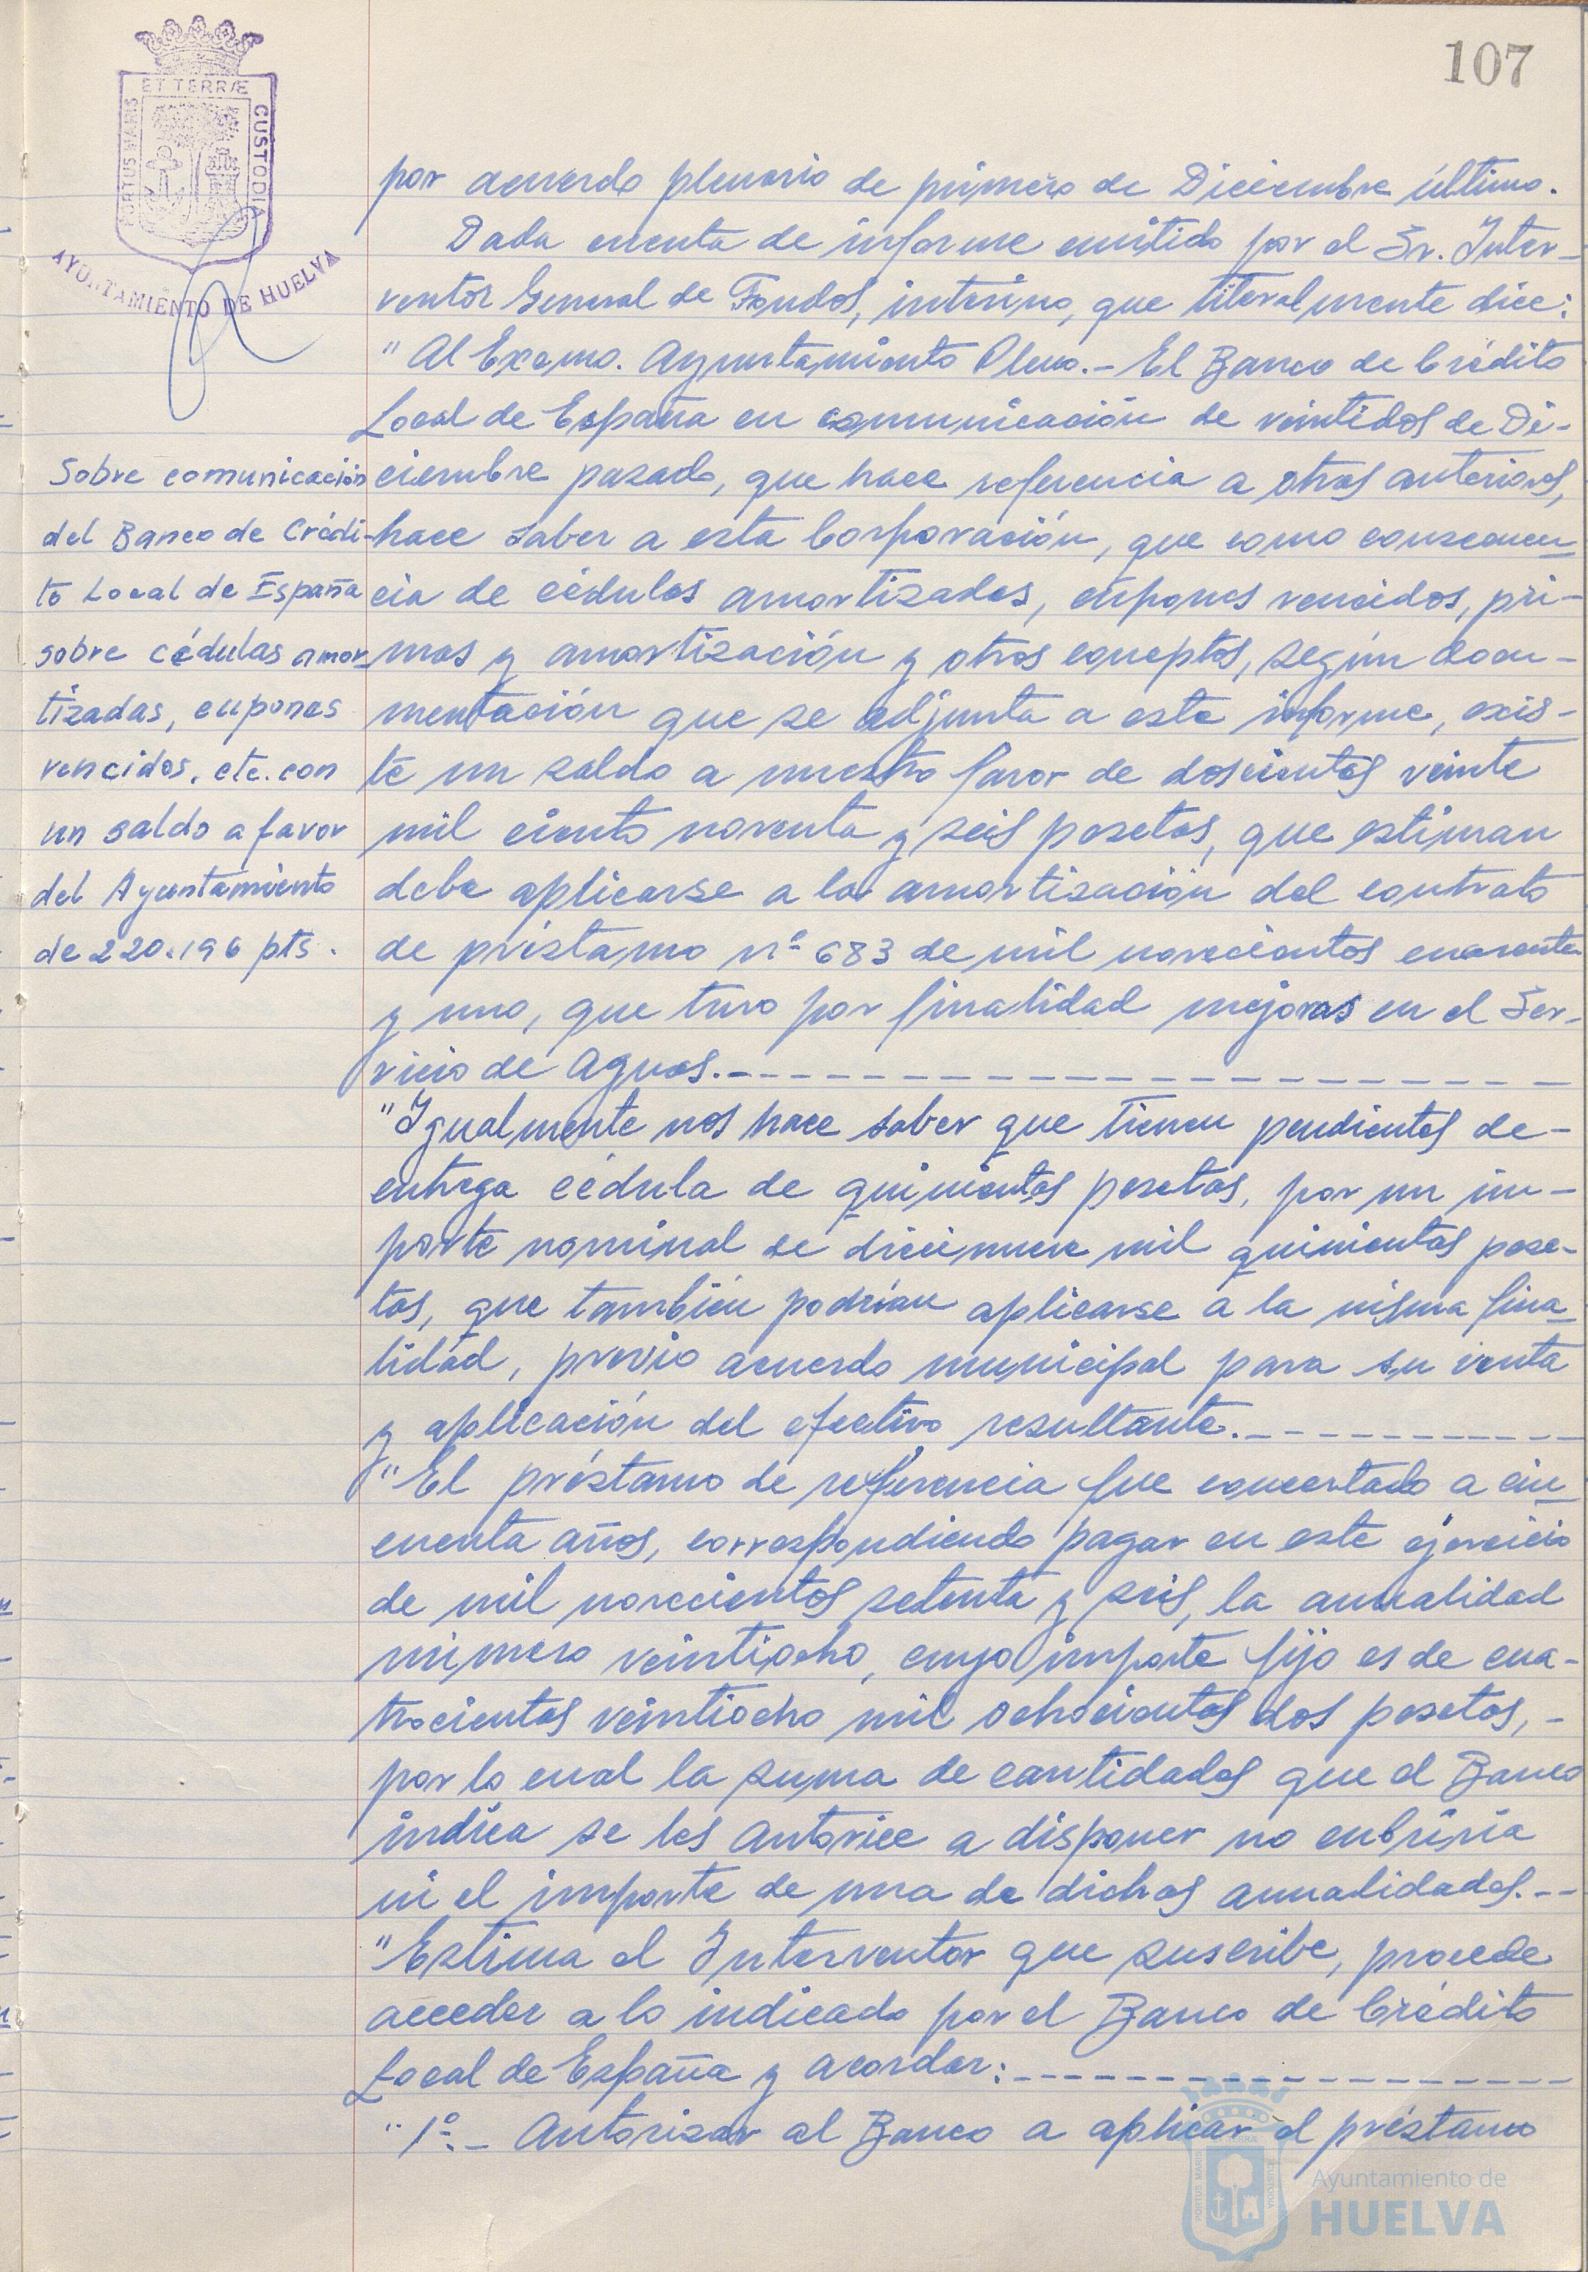 107
ET TERRÆ
PORTUS MARIS
CUSTODIA
AYUNTAMIENTO DE HUELVA
por acuerdo plenario de primero de Diciembre último.
Dada cuenta de informe emitido por el Sr. Inter-
ventor General de Fondos, interino, que literalmente dice:
"Al Excmo. Ayuntamiento Pleno.- El Banco de Crédito
Local de España en comunicación de veintidos de Di-
ciembre pasado, que hace referencia a otras anteriores,
hace saber a esta Corporación, que como consecuen-
cia de cédulas amortizadas, cupones vencidos, pri-
mas y amortización y otros conceptos, según docu-
mentación que se adjunta a este informe, exis-
te un saldo a nuestro favor de doscientas veinte
mil ciento noventa y seis pesetas, que estiman
debe aplicarse a la amortización del contrato
de préstamo nº 683 de mil novecientos cuarenta
y uno, que tuvo por finalidad mejoras en el Ser-
vicio de Aguas.-
Sobre comunicación
del Banco de Crédi-
to Local de España
sobre cédulas amor-
tizadas, cupones
vencidos, etc. con
un saldo a favor
del Ayuntamiento
de 220.196 pts.
"Igualmente nos hace saber que tienen pendientes de-
entrega cédula de quinientas pesetas, por un im-
porte nominal de diecinueve mil quinientas pese-
tas, que también podrían aplicarse a la misma fina-
lidad, previo acuerdo municipal para su venta
y aplicación del efectivo resultante.-
"El préstamo de referencia fue concertado a cin-
cuenta años, correspondiendo pagar en este ejercicio
de mil novecientos setenta y seis, la anualidad
número veintiocho, cuyo importe fijo es de cua-
trocientas veintiocho mil ochocientas dos pesetas,-
por lo cual la suma de cantidades que el Banco
indica se les autorice a disponer no cubriría
ni el importe de una de dichas anualidades.--
"Estima el Interventor que suscribe, procede
acceder a lo indicado por el Banco de Crédito
Local de España y acordar:-
"1º.- Autorizar al Banco a aplicar el préstamo
Ayuntamiento de
HUELVA